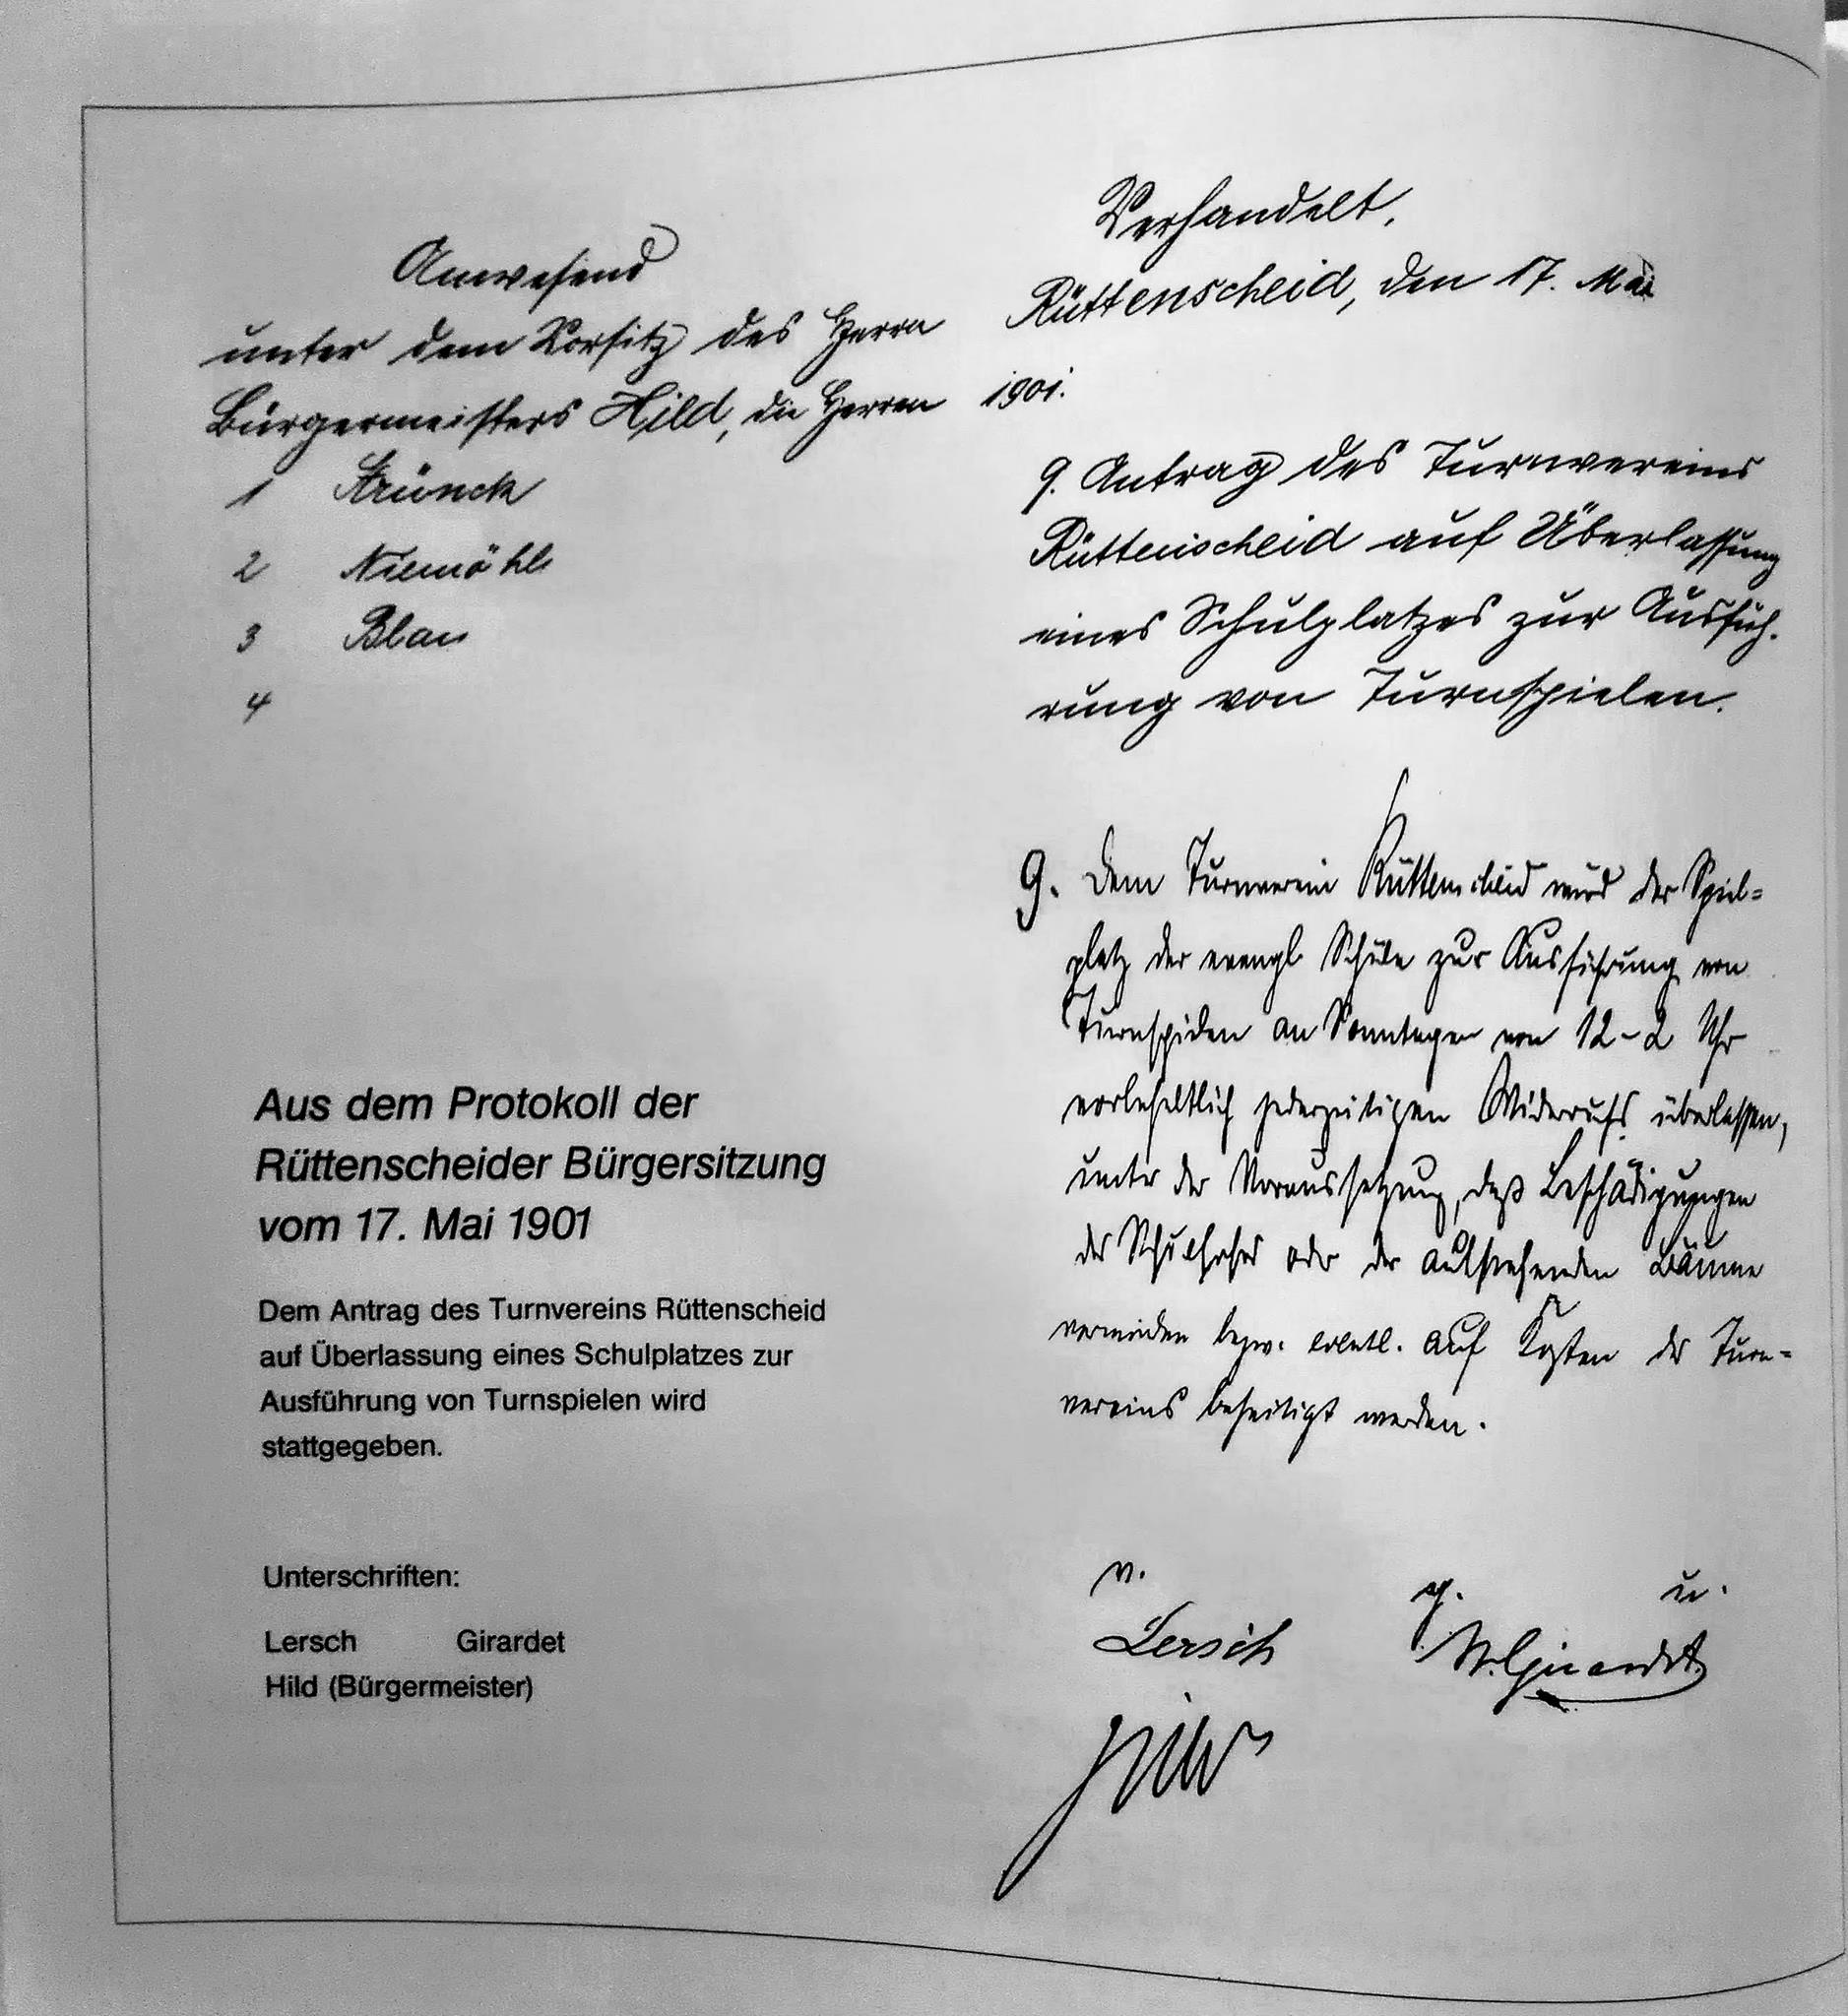 Anwesend
unter dem Vorsitz des Herrn
Bürgermeisters Hild, die Herren
1 Strünck
2 Niemöhle
3 Blau
4
Verhandelt,
Rüttenscheid, den 17. Mai
1901.
9. Antrag des Turnvereins
Rüttenscheid auf Überlassung
eines Schulplatzes zur Ausfüh-
rung von Turnspielen.
9. Dem Turnverein Rüttenscheid wird der Spiel=
platz der evangl. Schule zur Ausführung von
Turnspielen an Sonntagen von 12-2 Uhr
vorbehaltlich jederzeitigen Widerrufs überlassen,
unter der Voraussetzung, daß Beschädigungen
des Schulhofes oder der aufstehenden Bäume
vermieden bezw. eventl. auf Kosten des Turn=
vereins beseitigt werden.
v. g. u.
Lersch W. Girardet
Hild
Aus dem Protokoll der
Rüttenscheider Bürgersitzung
vom 17. Mai 1901
Dem Antrag des Turnvereins Rüttenscheid
auf Überlassung eines Schulplatzes zur
Ausführung von Turnspielen wird
stattgegeben.
Unterschriften:
Lersch Girardet
Hild (Bürgermeister)